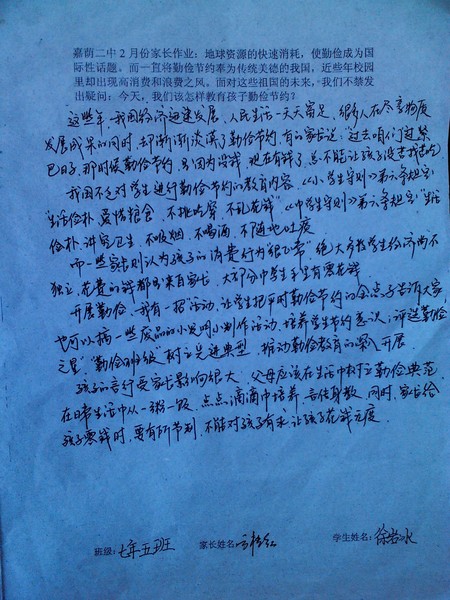 嘉荫二中2月份家长作业：地球资源的快速消耗，使勤俭成为国
际性话题。而一直将勤俭节约奉为传统美德的我国，近些年校园
里却出现高消费和浪费之风。面对这些祖国的未来，我们不禁发
出疑问：今天，我们该怎样教育孩子勤俭节约？
这些年，我国经济迅速发展，人民生活一天天富足，很多人在尽享物质
发展成果的同时，却渐渐淡漠了勤俭节约，有的家长说："过去咱们过紧
巴日子，那时候勤俭节约，是因为没钱，现在有钱了，总不能让孩子没苦找苦吃
我国不乏对学生进行勤俭节约的教育内容，《小学生守则》第六条规定：
"生活俭朴 爱惜粮食，不挑吃穿，不乱花钱"《中学生守则》第六条规定："生活
俭朴，讲究卫生，不吸烟，不喝酒，不随地吐痰
而一些家长则认为孩子的消费行为"很正常"，绝大多数学生经济尚不
独立，花费的钱都来自家长，大部分中学生手里有零花钱
开展勤俭，我有一招"活动，让学生把平时勤俭节约的金点子告诉大家，
也可以搞一些废品的小发明小制作活动，培养学生节约意识；评选勤俭
之星"，"勤俭班级"树立先进典型，推动勤俭教育的深入开展
孩子的言行受家长影响很大，父母应该在生活中树立勤俭典范
在日常生活中从一粥一饭，点点滴滴中培养，言传身教，同时，家长给
孩子零钱时，要有所节制，不能对孩子有求，让孩子花钱无度．
班级：七年五班 家长姓名： 学生姓名：徐岩冰